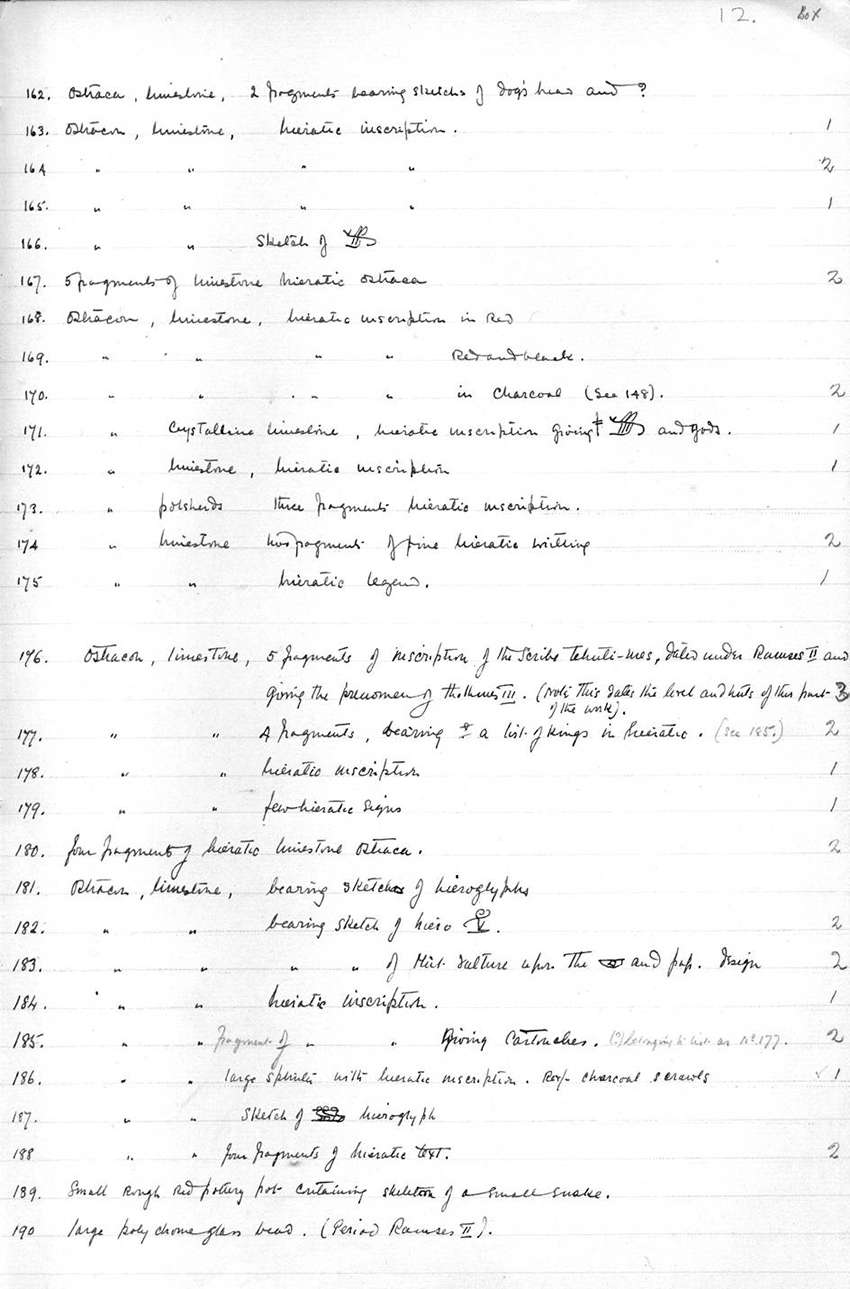 12. Box
162. Ostraca, limestone, 2 fragments bearing sketchs of dog's head and ?
163. Ostracon, limestone, hieratic inscription. 1
164 " " " " 2
165. " " " " 1
166. " " Sketch of
167. 5 fragments of limestone hieratic Ostraca 2
168. Ostracon, limestone, hieratic inscription in Red
169. " " " " Red and black.
170. " " " " in Charcoal (See 148). 2
171. " Crystalline limestone, hieratic inscription giving and gods. 1
172. " limestone, hieratic inscription 1
173. " potsherds three fragments hieratic inscription.
174 " limestone two fragments of fine hieratic writing 2
175 " " hieratic legend. 1
176. Ostracon, limestone, 5 fragments of inscription of the Scribe Tehuti-mes, dated under Ramses II and
giving the prenomen of Thothmes III. (Note This dates the level and huts of this part 3
of the work).
177. " " 4 fragments, bearing a list of Kings in hieratic. (See 185.) 2
178. " " hieratic inscription 1
179. " " few hieratic signs 1
180. four fragments of hieratic limestone Ostraca. 2
181. Ostracon, limestone, bearing sketches of hieroglyphs
182. " " bearing sketch of hiero . 2
183. " " " " of Mut. Vulture upon the and pap. design 2
184. " " hieratic inscription. 1
185. " " fragment of " " Giving Cartouches. (?) belonging to list as No. 177. 2
186. " " large splinter with hieratic inscription. Rev. charcoal scrawls 1
187. " " Sketch of hieroglyph
188 " " four fragments of hieratic text. 2
189. Small Rough Red pottery pot containing skeleton of a small snake.
190 large polychrome glass bead. (Period Ramses II).